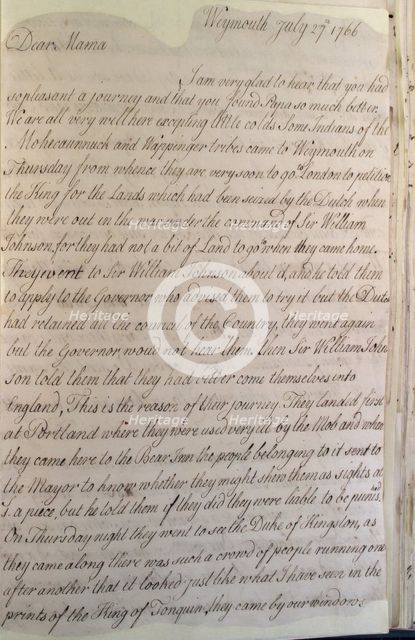 Weymouth July 27th 1766
Dear Mama
I am very glad to hear that you had
so pleasant a journey and that you found Papa so much better.
We are all very well here excepting little colds Some Indians of the
Mohecaunnuck and Wappenger tribes came to Weymouth on
Thursday from whence they are very soon to go to London to petition
the King for the Lands which had been seized by the Dutch when
they were out in the war under the command of Sir William
Johnson, for they had not a bit of Land to go to when they came home.
They went to Sir William Johnson about it, and he told them
to apply to the Governor who advised them to try it but the Dutch
had retained all the council of the Country, they went again
but the Governor would not hear them. then Sir William John
son told them that they had better come themselves into
England, This is the reason of their journey. They landed first
at Portland where they were used very ill by the Mob and when
they came here to the Bear Inn the people belonging to it sent to
the Mayor to know whether they might shew them as sights at
a piece, but he told them if they did they were liable to be punisd.
On Thursday night they went to see the Duke of Kingston, as
they came along there was such a crowd of people running one
after another that it looked just like what I have seen in the
prints of the King of Tonquin, they came by our windows
Heritage
Heritage
Heritage
Heritage
Heritage
Heritage